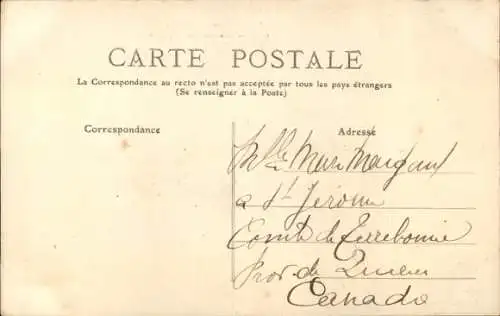 CARTE POSTALE
La Correspondance au recto n'est pas acceptée par tous les pays étrangers
(Se renseigner à la Poste)
Correspondance
Adresse
Mlle
a St Jerome
Comté de Terrebonne
Prov de Quebec
Canada